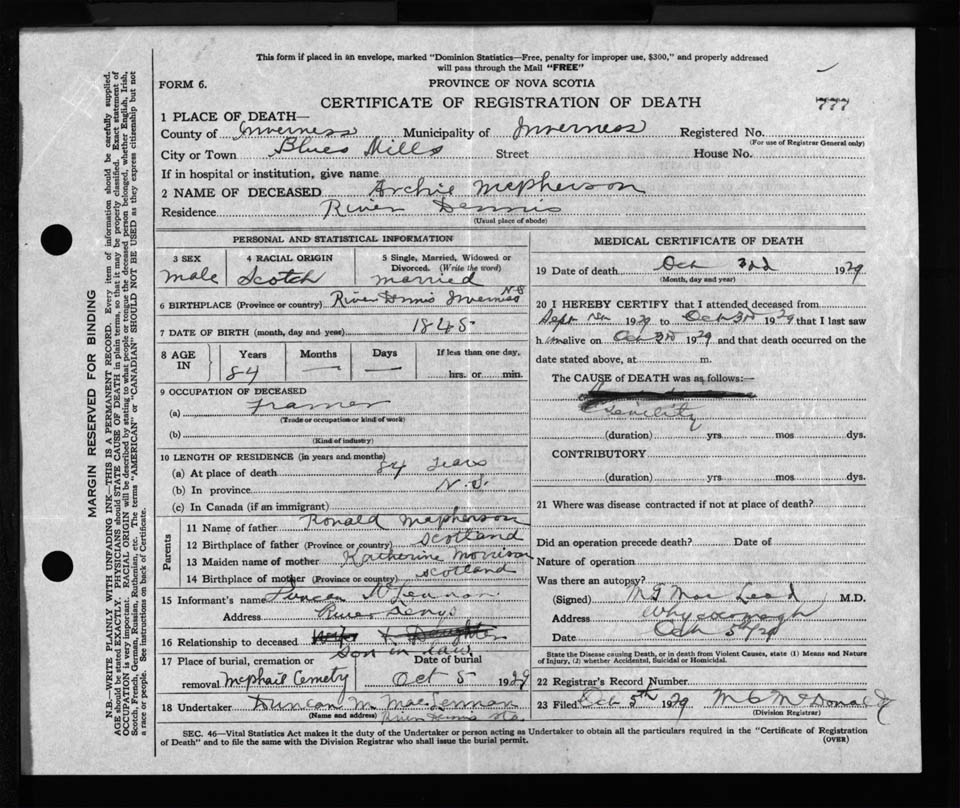 This form if placed in an envelope, marked "Dominion Statistics—Free, penalty for improper use, $300," and properly addressed
will pass through the Mail "FREE"
FORM 6. PROVINCE OF NOVA SCOTIA
CERTIFICATE OF REGISTRATION OF DEATH 777
1 PLACE OF DEATH—
County of Inverness Municipality of Inverness Registered No.
(For use of Registrar General only)
City or Town Blues Mills Street House No.
If in hospital or institution, give name
2 NAME OF DECEASED Archie Mcpherson
Residence River Dennis
(Usual place of abode)
PERSONAL AND STATISTICAL INFORMATION
3 SEX 4 RACIAL ORIGIN 5 Single, Married, Widowed or
Divorced. (Write the word)
male Scotch married
6 BIRTHPLACE (Province or country) River Dennis Inverness N S
7 DATE OF BIRTH (month, day and year) 1845
8 AGE IN Years Months Days If less than one day,
84 — — hrs. or min.
9 OCCUPATION OF DECEASED
(a) Framer
(Trade or occupation or kind of work)
(b)
(Kind of industry)
10 LENGTH OF RESIDENCE (in years and months)
(a) At place of death 84 years
(b) In province N.S.
(c) In Canada (if an immigrant)
Parents
11 Name of father Ronald Mcpherson
12 Birthplace of father (Province or country) Scotland
13 Maiden name of mother Katherine Morrison
14 Birthplace of mother (Province or country) Scotland
15 Informant's name Duncan McLennan
Address River Denys
16 Relationship to deceased Daughter
Son in law
17 Place of burial, cremation or Date of burial
removal Mcphail Cemetry Oct 5 1929
18 Undertaker Duncan M. MacLennan
(Name and address) River Dennis Sta.
MEDICAL CERTIFICATE OF DEATH
19 Date of death Oct 3rd 1929
(Month, day and year)
20 I HEREBY CERTIFY that I attended deceased from
Sept 1929 to Oct 3rd 1929 that I last saw
him alive on Oct 3rd 1929 and that death occurred on the
date stated above, at m.
The CAUSE OF DEATH was as follows:—
Senility
(duration) yrs. mos dys.
CONTRIBUTORY
(duration) yrs. mos dys.
21 Where was disease contracted if not at place of death?
Did an operation precede death? Date of
Nature of operation
Was there an autopsy?
(Signed) MacLeod M.D.
Address Whycocomagh
Date Oct 5 29
State the Disease causing Death, or in death from Violent Causes, state (1) Means and Nature
of Injury, (2) whether Accidental, Suicidal or Homicidal.
22 Registrar's Record Number
23 Filed Oct 5th 1929 M C McDonald
(Division Registrar)
SEC. 46—Vital Statistics Act makes it the duty of the Undertaker or person acting as Undertaker to obtain all the particulars required in the "Certificate of Registration
of Death" and to file the same with the Division Registrar who shall issue the burial permit. (OVER)
MARGIN RESERVED FOR BINDING
N.B.—WRITE PLAINLY WITH UNFADING INK—THIS IS A PERMANENT RECORD. Every item of information should be carefully supplied.
AGE should be stated EXACTLY. PHYSICIANS should STATE CAUSE OF DEATH in plain terms, so that it may be properly classified. Exact statement of
OCCUPATION is very important. RACIAL ORIGIN will be described by stating to what people or tongue the deceased person belonged, whether English, Irish,
Scotch, French, German, Russian, Ruthenian, etc. The terms "AMERICAN" or "CANADIAN" SHOULD NOT BE USED as they express citizenship but not
a race or people. See instructions on back of Certificate.